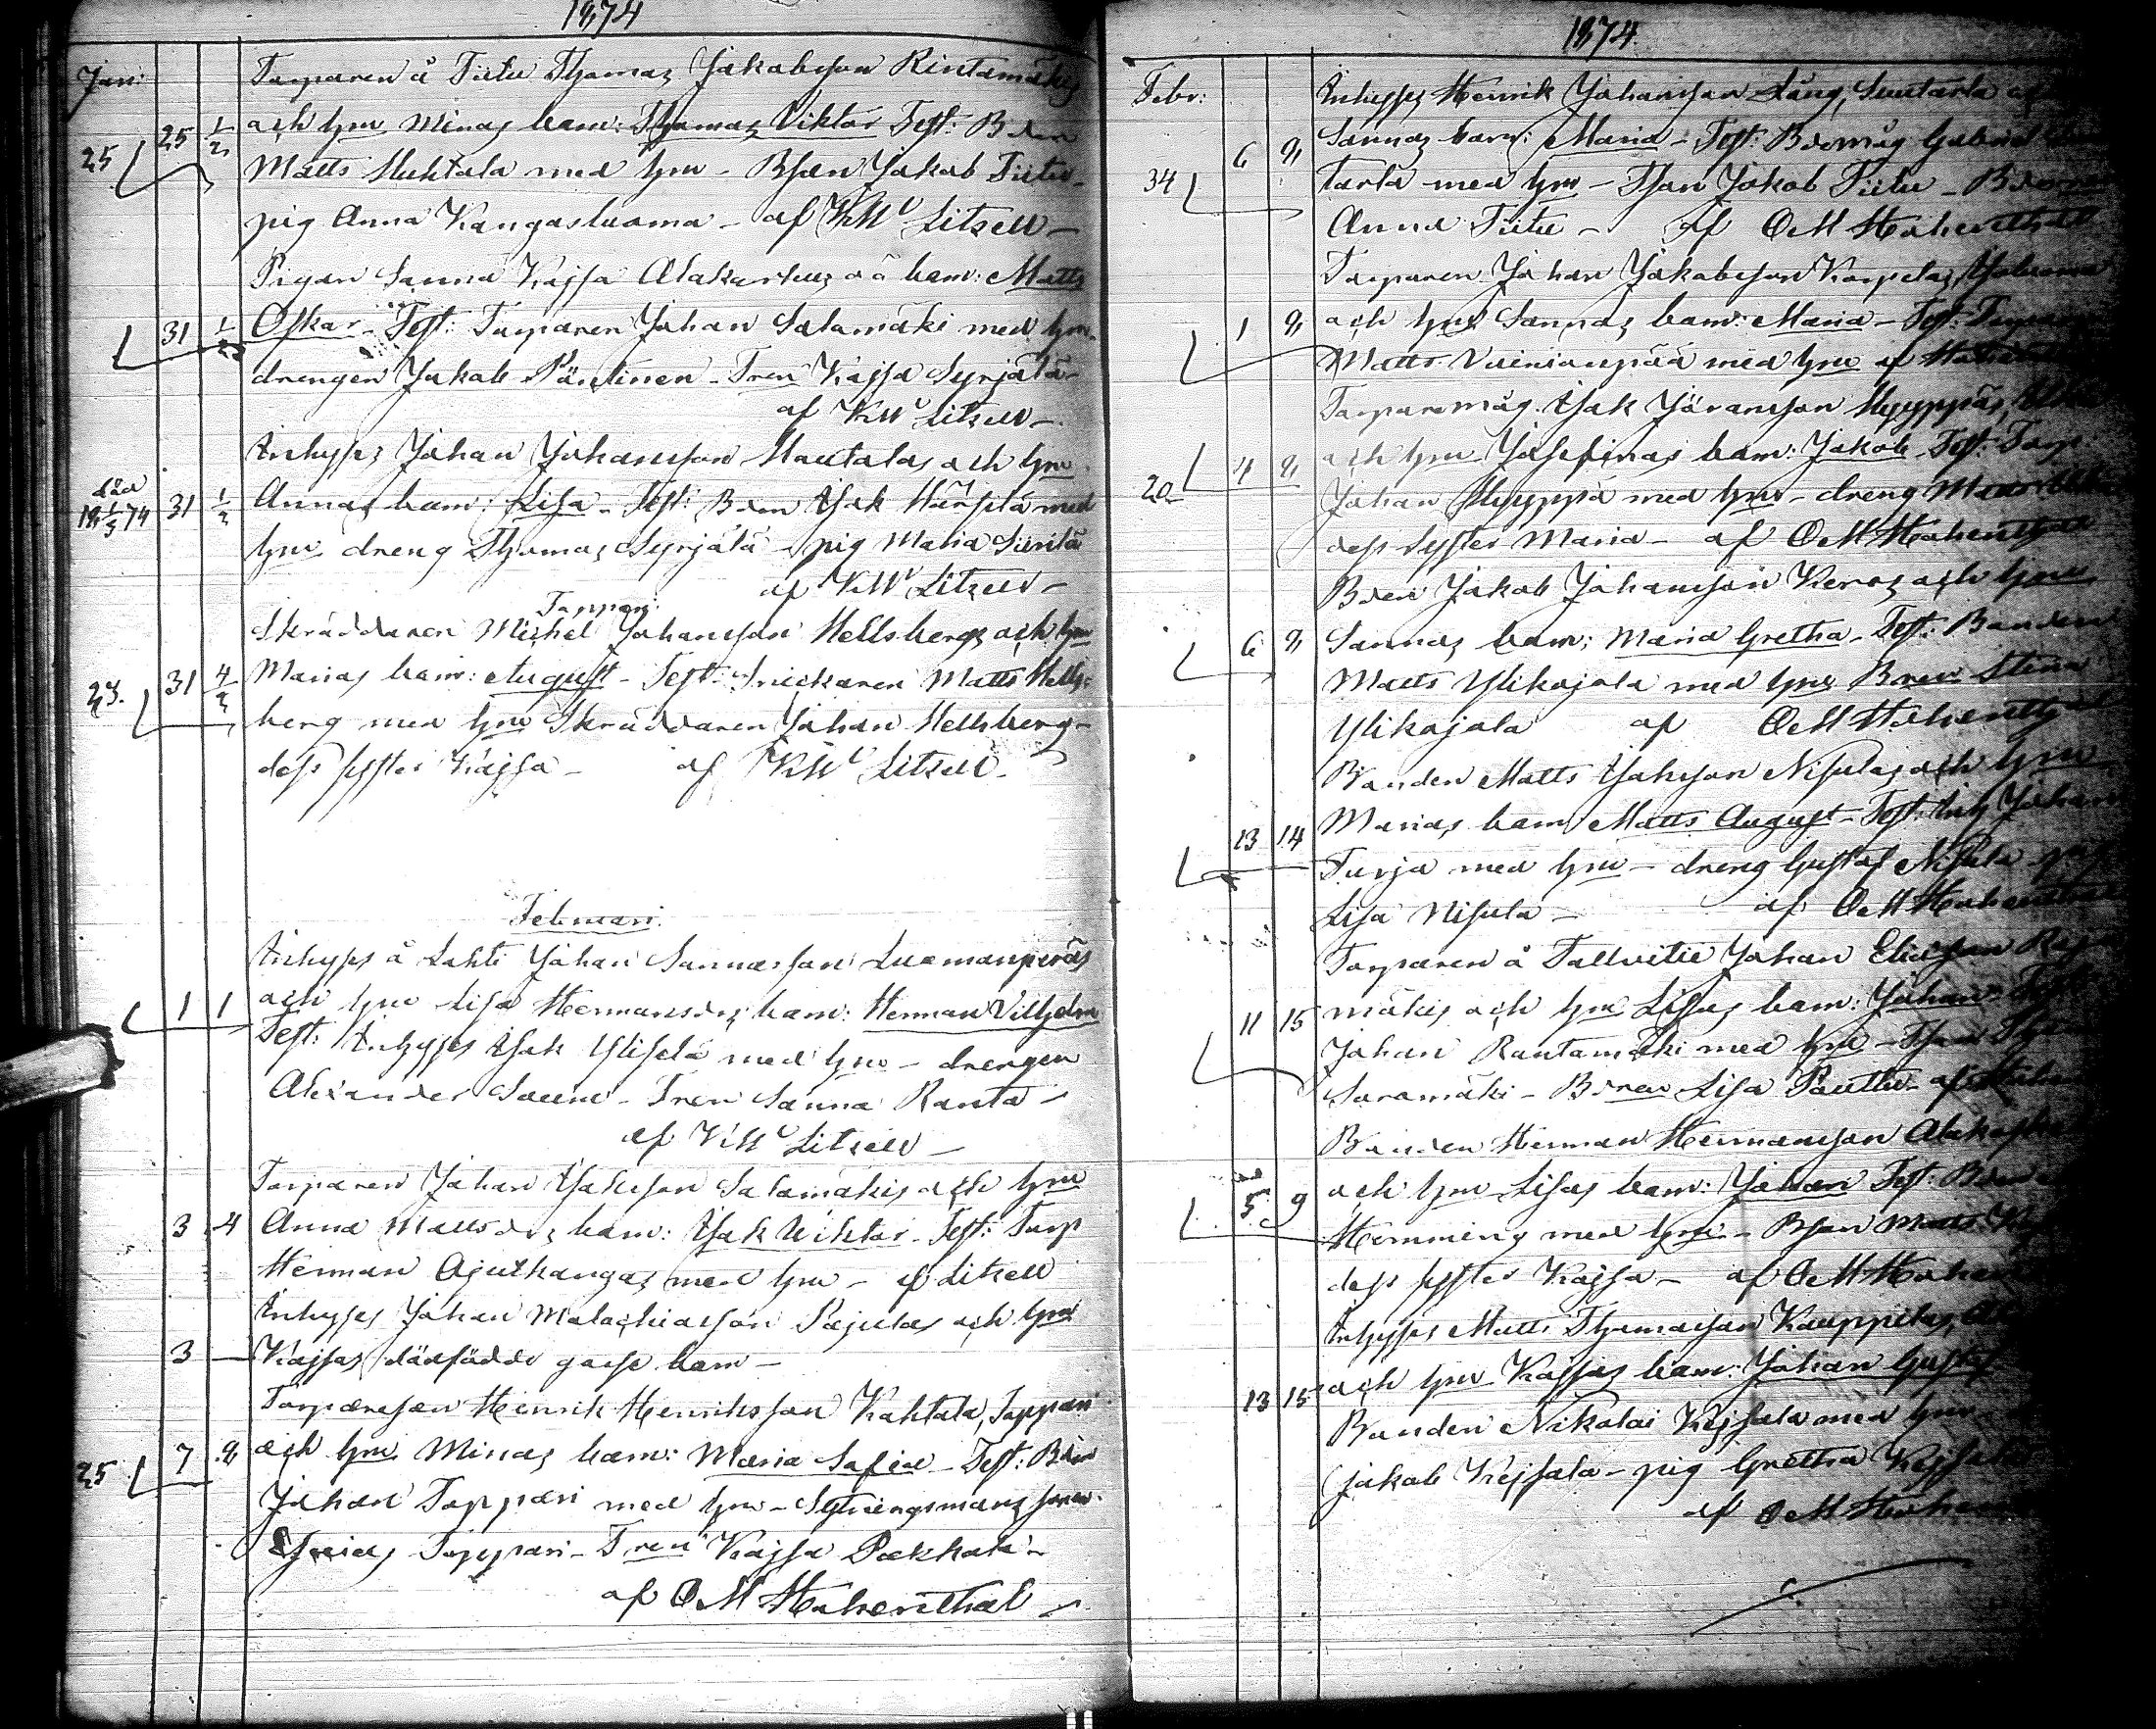 1874
Jan:
Torparen å Tiitu Thomas Jakobsson Rintamäkis
25 25 1/2 och hu Minas barn: Thomas Viktor Test: Bden
Matts Huhtala med hu - Bson Jakob Tiitu -
pig Anna Kangasluoma - af KMl Litzell -
Pigan Sanna Kajsa Alakarhus oä barn: Matts
31 1/2 Oskar - Test: Torparen Johan Salamäki med hu -
drengen Jakob Päntinen - Tren Kajsa Syrjälä -
af KMl Litzell -
Inhyses Johan Johansson Hautalas och hu
död 18 1/3 74 31 1/2 Annas barn: Lisa - Test: Bden Isak Härsilä med
hu dreng Thomas Syrjälä - pig Maria Siirilä
af KMl Litzell -
Toppari
Skräddaren Michel Johansson Hellsbergs och hu
23. 31 4/2 Marias barn: August - Test: Snickaren Matts Hells-
berg med hu Skräddaren Johan Hellsberg -
dess syster Kajsa - af KMl Litzell -
Februari.
Inhyses å Lahti Johan Sannasson Luomanperäs
1 1 och hu Lisa Hermansdrs barn: Herman Vilhelm
Test: Inhyses Isak Yliselä med hu - drengen
Alexander Sauna - Tren Sanna Ranta -
af KMl Litzell -
Torparen Johan Isaksson Salamäkis och hu
3 4 Anna Mattsdrs barn: Isak Wiktor - Test: Torp
Herman Ojutkangas med hu - af Litzell
Inhyses Johan Malachiasson Pajulas och hu
3 - Kajsas dödfödde gosse barn -
Torpareson Henrik Henriksson Kahtala, Toppari
25 7 8 och hu Minas barn: Maria Sofia - Test: Bden
Johan Toppari med hu - Sytningsmans sonen
Toppari - Tren Kajsa Pakkala -
af OM Hohenthal
1874
Febr:
Inhyses Henrik Johansson Lång, Luutarla
34 6 8 Sannas barn: Maria - Test: Bdemåg Gabriel
tarla med hu - Tson Jakob Tiitu -
Anna Tiitu - af OM Hohenthal
Torparen Johan Jakobsson Karpelas,
1 8 och hu Sannas barn: Maria - Test: Torp
Matts Vainionpää med hu af
Torparemåg Isak Göransson Hyyppäs,
20 4 8 och hu Josefinas barn: Jakob - Test: Torp
Johan Hyyppä med hu - dreng Matts
dess syster Maria - af OM Hohenthal
Bden Jakob Johansson Keros och hu
6 8 Sannas barn: Maria Gretha - Test: Bonden
Matts Ylikojola med hu Bdren Stina
Ylikojola af OM Hohenthal
Bonden Matts Isaksson Nisulas och hu
13 14 Marias barn Matts August - Test: Inh Johan
Turja med hu - dreng Gustaf Nisula
Lisa Nisula - af OM Hohenthal
Torparen å Tallvitie Johan Eliasson
11 15 mäkis och hu Lisas barn: Johan - Test
Johan Rantamäki med hu -
Saramäki - Bdren Lisa Panttu - af
Bonden Herman Hermansson
5 9 och hu Lisas barn: Johan Test: Bden
Hemming med hu - Bson Matts
dess syster Kajsa - af OM Hohenthal
Inhyses Matts Thomasson Kauppilas,
13 15 och hu Kajsas barn: Johan Gustaf
Bonden Nikolai Kejsala med hu
Jakob Kejsala - pig Gretha Kejsala
af OM Hohenthal